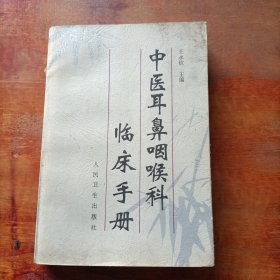 王永钦 主编
中医耳鼻咽喉科
临床手册
人民卫生出版社